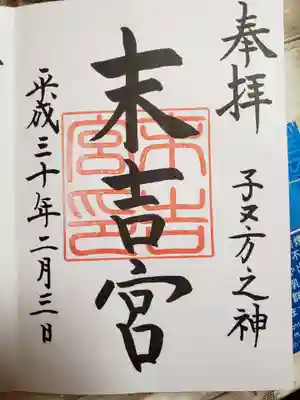 奉拝
子又方之神
末吉宮
末吉宮印
平成三十年二月三日